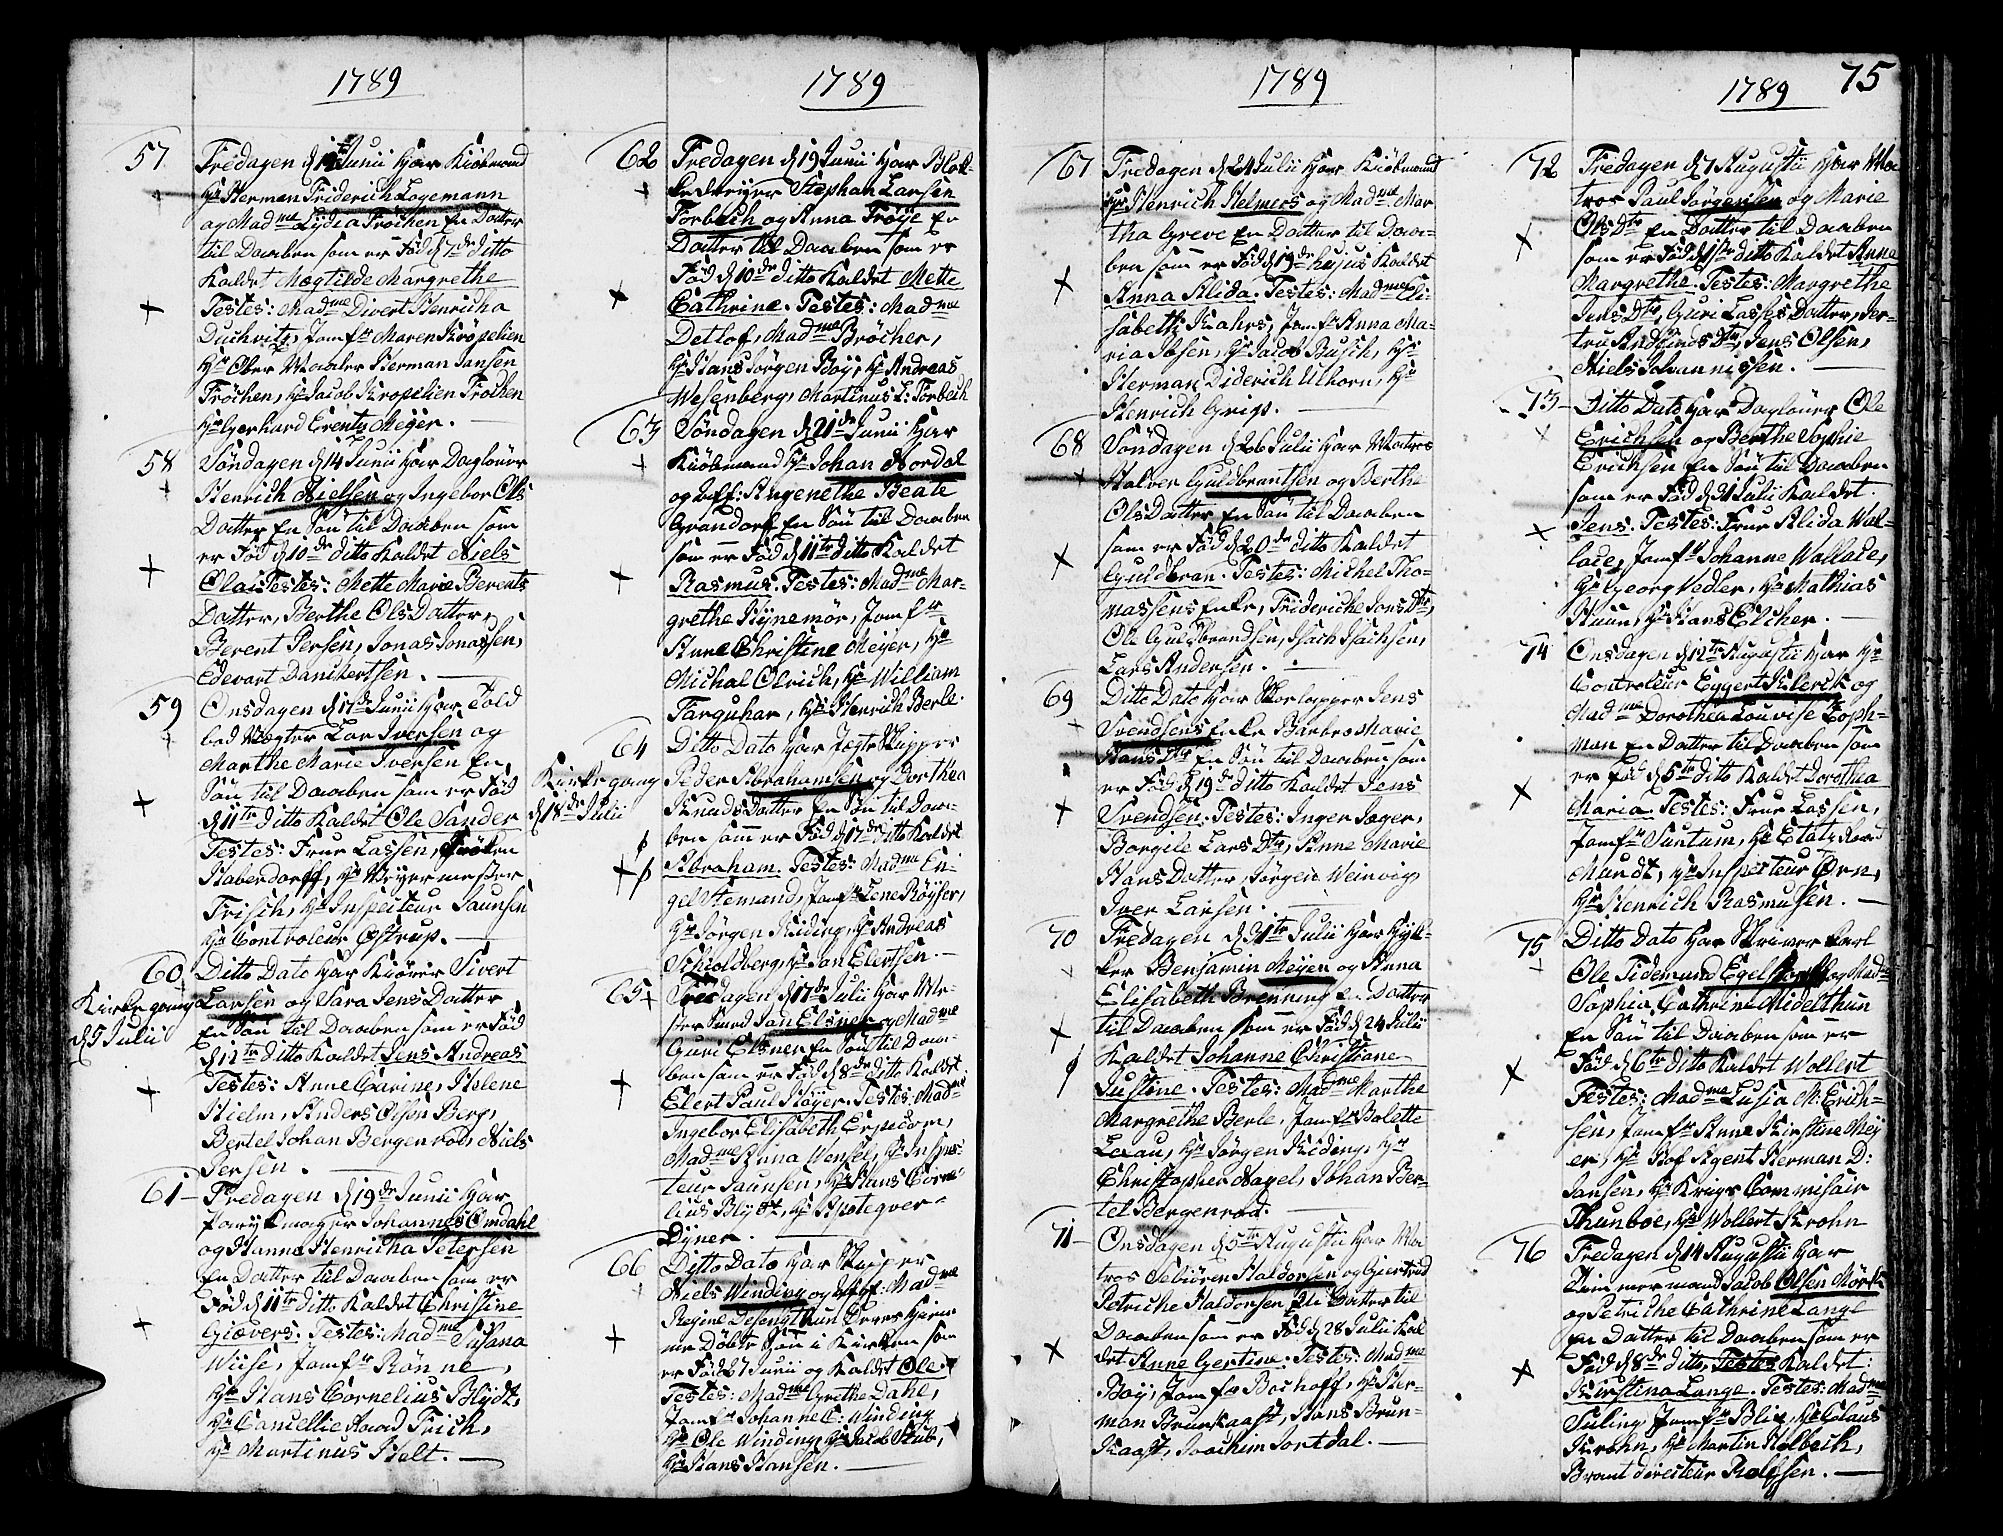 1789
57
Fredagen d 12 Junii har Kiöbmand
Hr Herman Friderich Logemann
og Madme Lydia Fröchen En Datter
til Daaben som er Föd d 7de ditto
Kaldet Mægtilde Margrethe
Testes: Madme Divert Henricha
Duchvitz, Jomfr Maren Kröpelien
Hr Ober Maaler Herman Jansen
Fröchen, Hr Jacob Kropelien Fröchen
Hr Gerhard Erentz Meyer.
58
Söndagen d 14 Junii har Daglöner
Henrich Nielsen og Ingebor Ols
Datter En Sön til Daaben som
er Föd d 10de ditto Kaldet Niels
Olai Testes: Mette Marie Berents
Datter, Berthe Ols Datter,
Berent Persen, Jonas Jonassen,
Edevart Danikertsen.
59
Onsdagen d 17de Junii har Told
bed Vogter Lar Iversen og
Marthe Marie Iversen En
Sön til Daaben som er Föd
d 11te ditto Kaldet Ole Sander
Testes: Frue Lassen, Fröken
Haberdorff, Hr Veyermester
Frisch, Hr Inspecteur Jaunsen
Hr Controleur Ostrup.
60
Kirkegang
d 5 Julii
Ditto Dato har Kiörer Sivert
Larsen og Sara Jens Datter
En Sön til Daaben som er Föd
d 12te ditto Kaldet Jens Andreas
Testes: Anne Carine, Helene
Hielm, Anders Olsen Berg,
Bertel Johan Bergenrod, Niels
Persen.
61
Fredagen d 19de Junii har
Parykmager Johannes Omdahl
og Hanna Henricha Petersen
En Datter til Daaben som er
Föd d 11te ditto Kaldet Christine
Giævers. Testes: Madme Susana
Wiise, Jomfr Rönne,
Hr Hans Cornelius Blydt,
Hr Cancellie Raad Frich,
Hr Martinus Holt.
1789
62
Fredagen d 19 Junii har Blok-
kedreyer Stephan Larsen
Torbech og Anna Froye En
Datter til Daaben som er
Föd d 10de ditto Kaldet Mette
Cathrine. Testes: Madme
Detlof, Madme Bröcher,
Hr Hans Jörgen Boy, Hr Andreas
Wesenberg, Martinus L: Torbech
63
Söndagen d 21de Junii har
Kiöbmand Hr Johan Nordal
og Angenethe Beate
Grandorf En Sön til Daaben
som er Föd d 11te ditto Kaldet
Rasmus. Testes: Madme Mar-
grethe Hynemör, Jomfr
Anne Christine Meyer, Hr
Michal Olrich, Hr William
Farquhar, Hr Henrich Berle.
64
Kirkegang
d 18de Julii
Ditto Dato har Jægte Skipper
Peder Abrahamsen og Dorthea
Knuds Datter En Sön til Daa-
ben som er Föd d 17de ditto Kaldet
Abraham. Testes: Madme En-
gel Hemand, Jomfr Lene Röyser,
Hr Jörgen Kiding, Hr Andreas
Schioldberg, Hr Jan Elertsen.
65
Fredagen d 17de Julii har Me-
ster Smed Jan Elsner og Madme
Guri Elsner En Sön til Daa-
ben som er Föd d 8de ditto Kaldet
Elert Paul Höyer. Testes: Madme
Ingebor Elisabeth Erpecom,
Madme Anna Wensel, Hr Inspec-
teur Jaunsen, Hr Hans Corne-
lius Blydt, Hr Apoteqver
Dyner.
66
Ditto Dato har Skipper
Niels Winding og Madme
Regine Desengthun Deres Hiem
me Döbte Sön i Kirken som
er Föd 27 Junii og Kaldet Ole
Testes: Madme Grethe Dahl,
Jomfr Johanne C: Winding
Hr Ole Winding, Hr Jacob Stub,
Hr Hans Hansen.
1789
67
Fredagen d 24 Julii har Kiöbmand
Hr Henrich Helmers og Madme Mar
tha Greve En Datter til Daa-
ben som er Föd d 19de hujus Kaldet
Anna Alida. Testes: Madme Eli-
sabeth Kahrs, Jomfr Anna Ma-
ria Ibsen, Hr Jacob Busch, Hr
Herman Diderich Alhorn, Hr
Henrich Grips.
68
Söndagen d 26 Julii har Matros
Halvor Guldbrantsen og Berthe
Ols Datter En Sön til Daaben
som er Föd d 20de ditto Kaldet
Guldbran. Testes: Michel Tho-
massens Enke, Frideriche Jons Dtr,
Ole Guldbrandsen, Isach Isachsen,
Lars Andersen.
69
Ditto Dato har Skolapper Jens
Svendsens Enke Barbro Marie
Hans Dtr En Sön til Daaben som
er Föd d 19de ditto Kaldet Jens
Svendsen. Testes: Inger Soger,
Borgile Lars Dtr, Anne Marie
Hans Datter, Jörgen Weinvig,
Iver Larsen.
70
Fredagen d 31te Julii har Hyk-
ker Benjamin Meyen og Anna
Elisabeth Brenning En Datter
til Daaben som er Föd d 24 Julii
Kaldet Johanne Christiane
Justine. Testes: Madme Marthe
Margrethe Berle, Jomfr Bolette
Lexau, Hr Jörgen Kiding, Hr
Christopher Nagel, Johan Ber-
tel Bergenrod.
71
Onsdagen d 5te Augustii har Ma
tros Sebiören Haldorsen og Giertrud
Petriche Haldorsen En Datter til
Daaben som er Föd d 28 Julii Kal
det Anne Gertine. Testes: Madme
Boy, Jomfr Bochoff, Hr Her-
man Brunkaast, Hans Brun-
kaast, Joachim Jontdal.
1789
75
72
Fredagen d 7 Augustii har Ma
tros Paul Jörgensen og Marie
Ols Dtr En Datter til Daaben
som er Föd d 1te ditto Kaldet Anne
Margrethe. Testes: Margrethe
Jens Dtr, Guri Lasses Datter, Ger-
tru Andsinds Dtr, Jens Olsen,
Niels Johannissen.
73
Ditto Dato har Daglöner Ole
Erichsen og Berthe Sophie
Erichsen En Sön til Daaben
som er Föd d 31 Julii Kaldet
Jens: Testes: Frue Alida Wal-
lace, Jomfr Johanne Wallace,
Hr Georg Vedler, Hr Mathias
Huun, Hr Hans Elcher.
74
Onsdagen d 12te Augustii har Hr
Controleur Eggert Klerck og
Madme Dorothea Louvise Coph-
man En Datter til Daaben som
er Föd d 5te ditto Kaldet Dorothea
Maria Testes: Frue Lassen,
Jomfr Suntum, Hr Etatz Raad
Mundt, Hr Inspecteur Örn,
Hr Henrich Rasmusen.
75
Ditto Dato har Skriver Karl
Ole Tidemand Egel og Madme
Sophia Cathrine Midelthun
En Sön til Daaben som er
Föd d 6te ditto Kaldet Wollert
Testes: Madme Lusia M: Erich-
sen, Jomfr Anne Kirstine Mey
er, Hr Hof Agent Herman D:
Jansen, Hr Krigs Commisair
Thunboe, Hr Wollert Krohn
76
Fredagen d 14 Augustii har
Timmermand Jacob Olsen Mörk
og Petriche Cathrine Lange
En Datter til Daaben som er
Föd d 8de ditto Testes Kaldet:
Kirstina Lange. Testes: Madme
Suling, Jomfr Blix, Hr Claus
Krohn, Hr Martin Holbech,
Brant directeur Rolfsen.